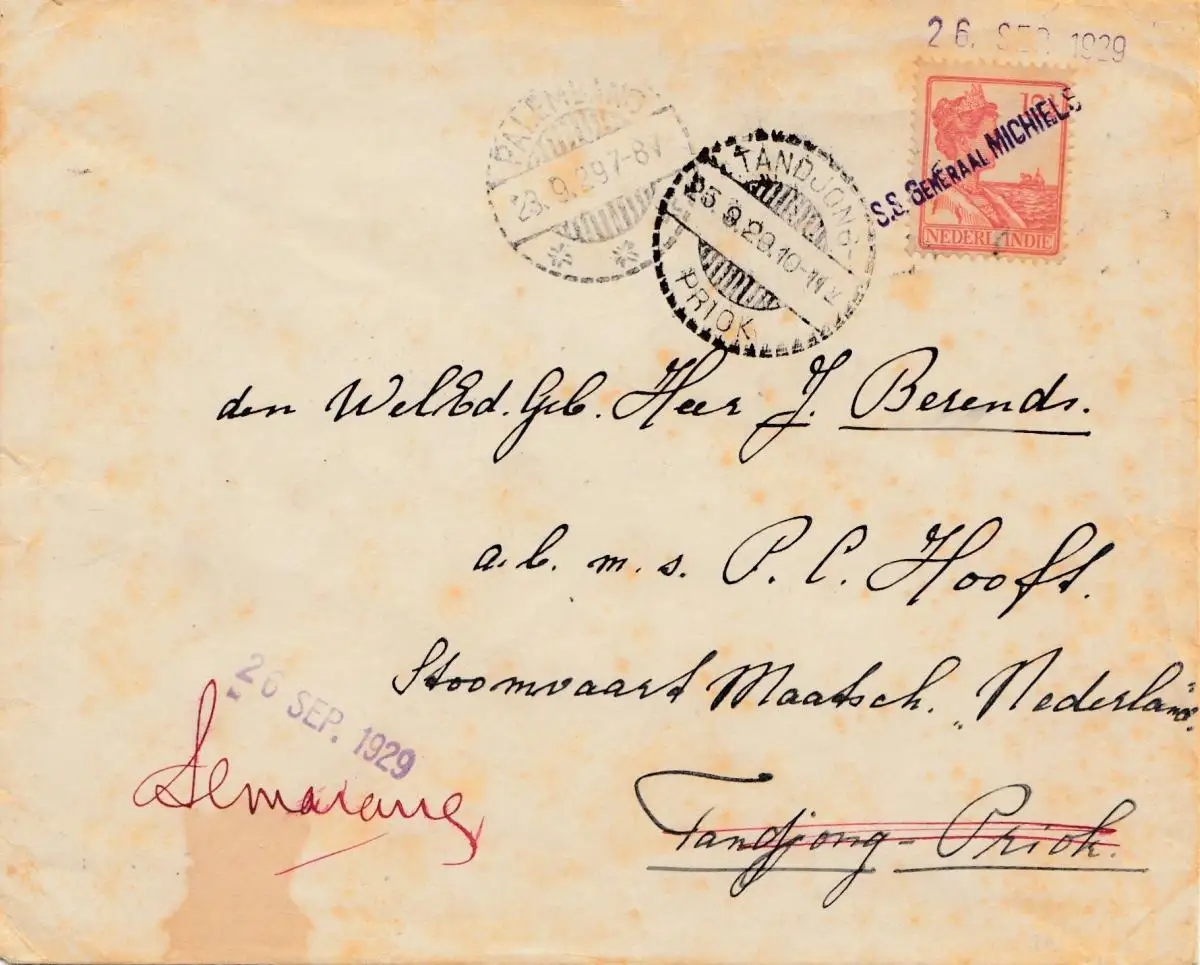 26. SEP. 1929
PALEMBANG
23.9.29 7-8V
TANDJONG-
25.9.29.10-11V
PRIOK
12½
S.S. GENERAAL MICHIELS
NEDERL.INDIE
den WelEd. Geb. Heer J. Berends.
a.b. m.s. P. C. Hooft.
Stoomvaart Maatsch. „Nederland".
Tandjong-Priok.
26 SEP. 1929
Semarang